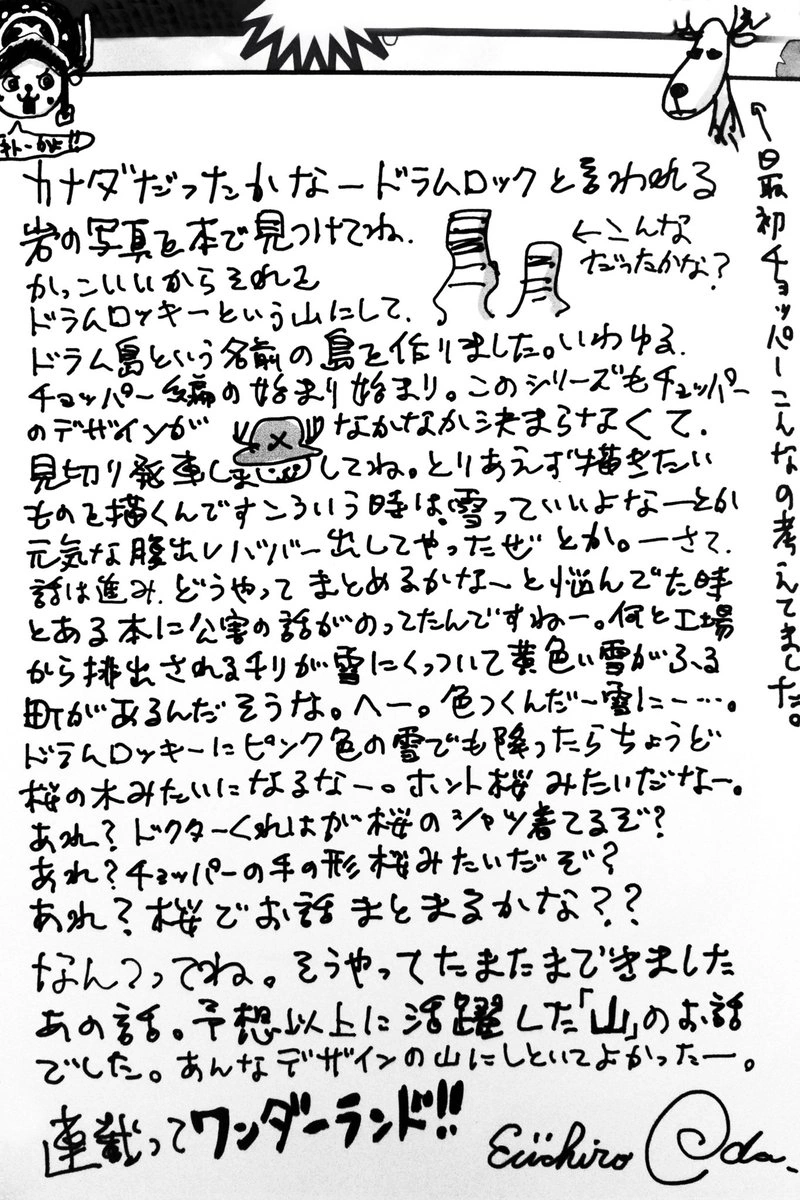 カナダだったかなードラムロックと言われる
岩の写真を本で見つけてね.
←こんな
だったかな?
かっこいいからそれを
ドラムロッキーという山にして.
ドラム島という名前の島を作りました。いわゆる.
チョッパー編の始まり始まり。このシリーズもチョッパー
のデザインが なかなか決まらなくて.
見切り発車しまじ してね。とりあえず描きたい
ものを描くんですこういう時は、雪っていいよなーとか
元気な腹出しババー出してやったぜとか。ーさて.
話は進み.どうやってまとめるかな〜と悩んでた時
とある本に公害の話がのってたんですねー。何と工場
から排出されるチリが雪にくっついて黄色い雪がふる
町があるんだそうな。へー。色つくんだー雪にー…。
ドラムロッキーにピンク色の雪でも降ったらちょうど
桜の木みたいになるなー。ホント桜みたいだなー。
あれ?ドクターくれはが桜のシャツ着てるぞ?
あれ?チョッパーの手の形桜みたいだぞ?
あれ?桜でお話まとまるかな??
なんつってね。そうやってたまたまできました
あの話。予想以上に活躍した「山」のお話
でした。あんなデザインの山にしといてよかったー。
連載ってワンダーランド!!
Eiichiro Oda.
←最初チョッパーこんなの考えてました。